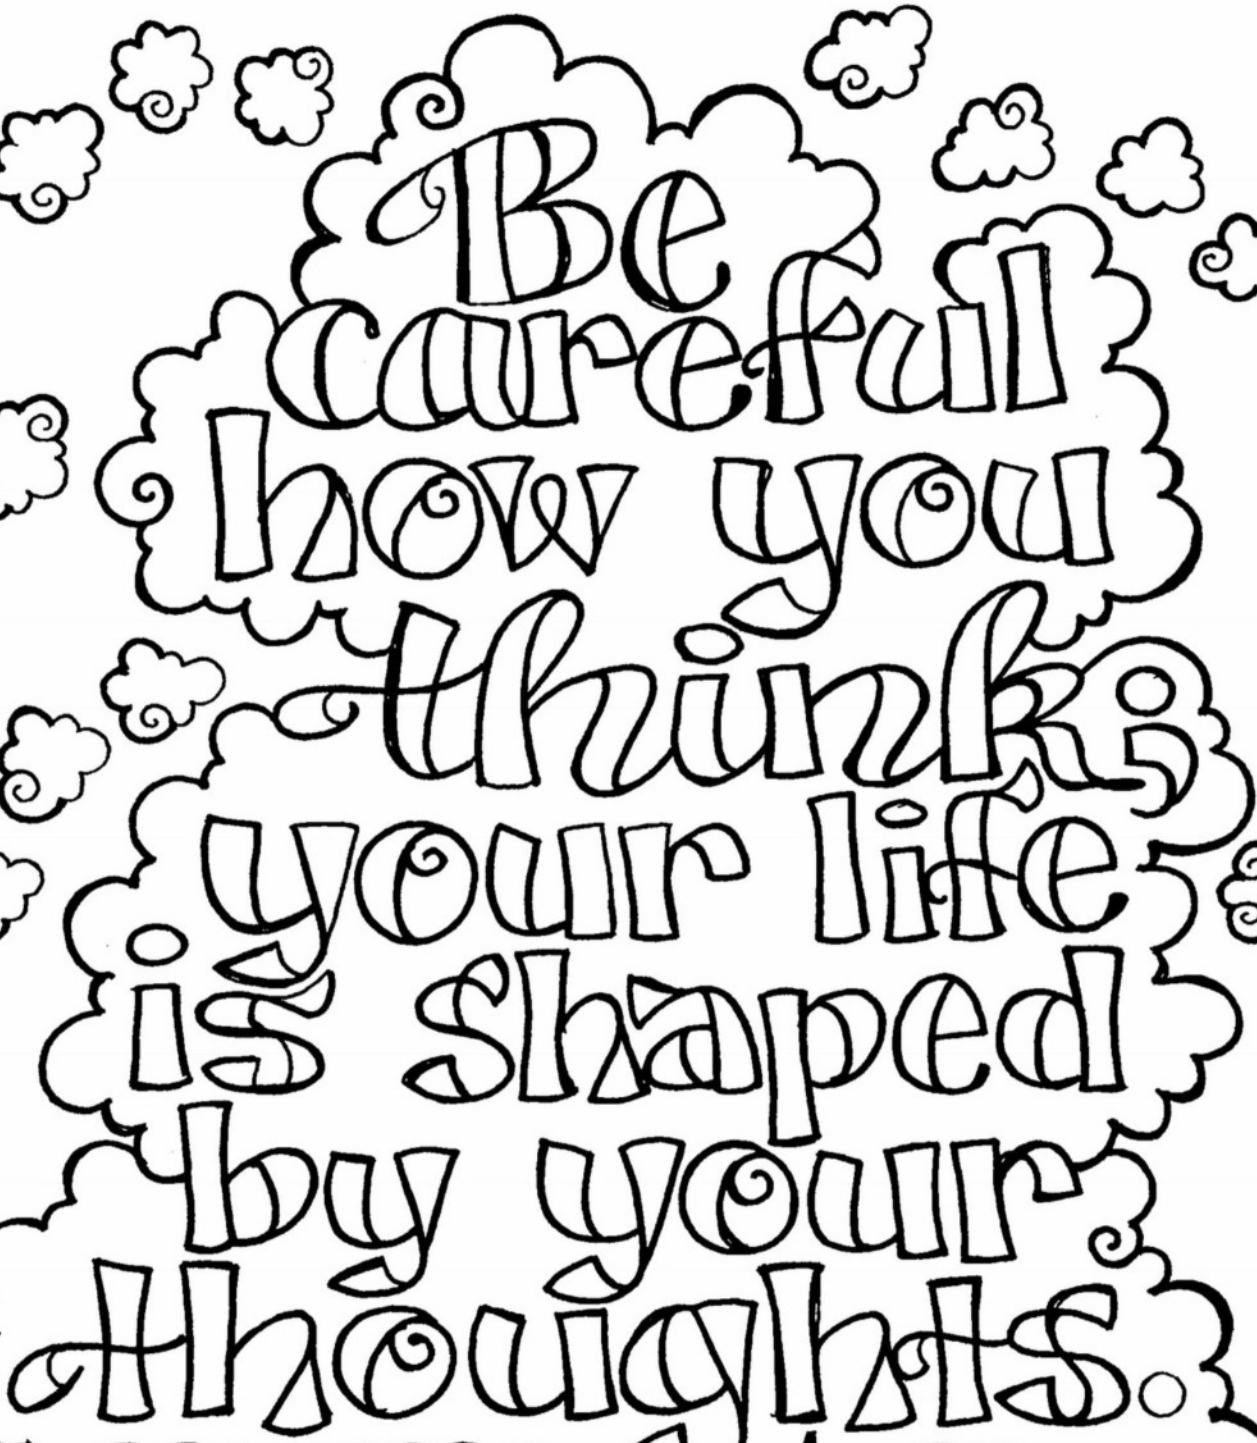 Be
careful
how you
think;
your life
is shaped
by your
thoughts.